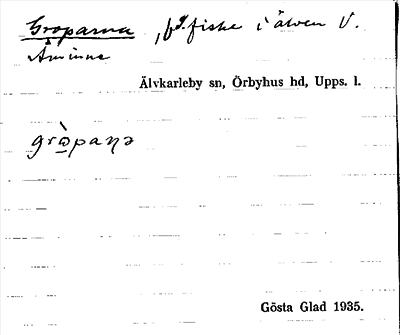 Groparna, fd. fiske i älven V.
Åminne
Älvkarleby sn, Örbyhus hd, Upps. l.
grɷ̀paṇə
Gösta Glad 1935.